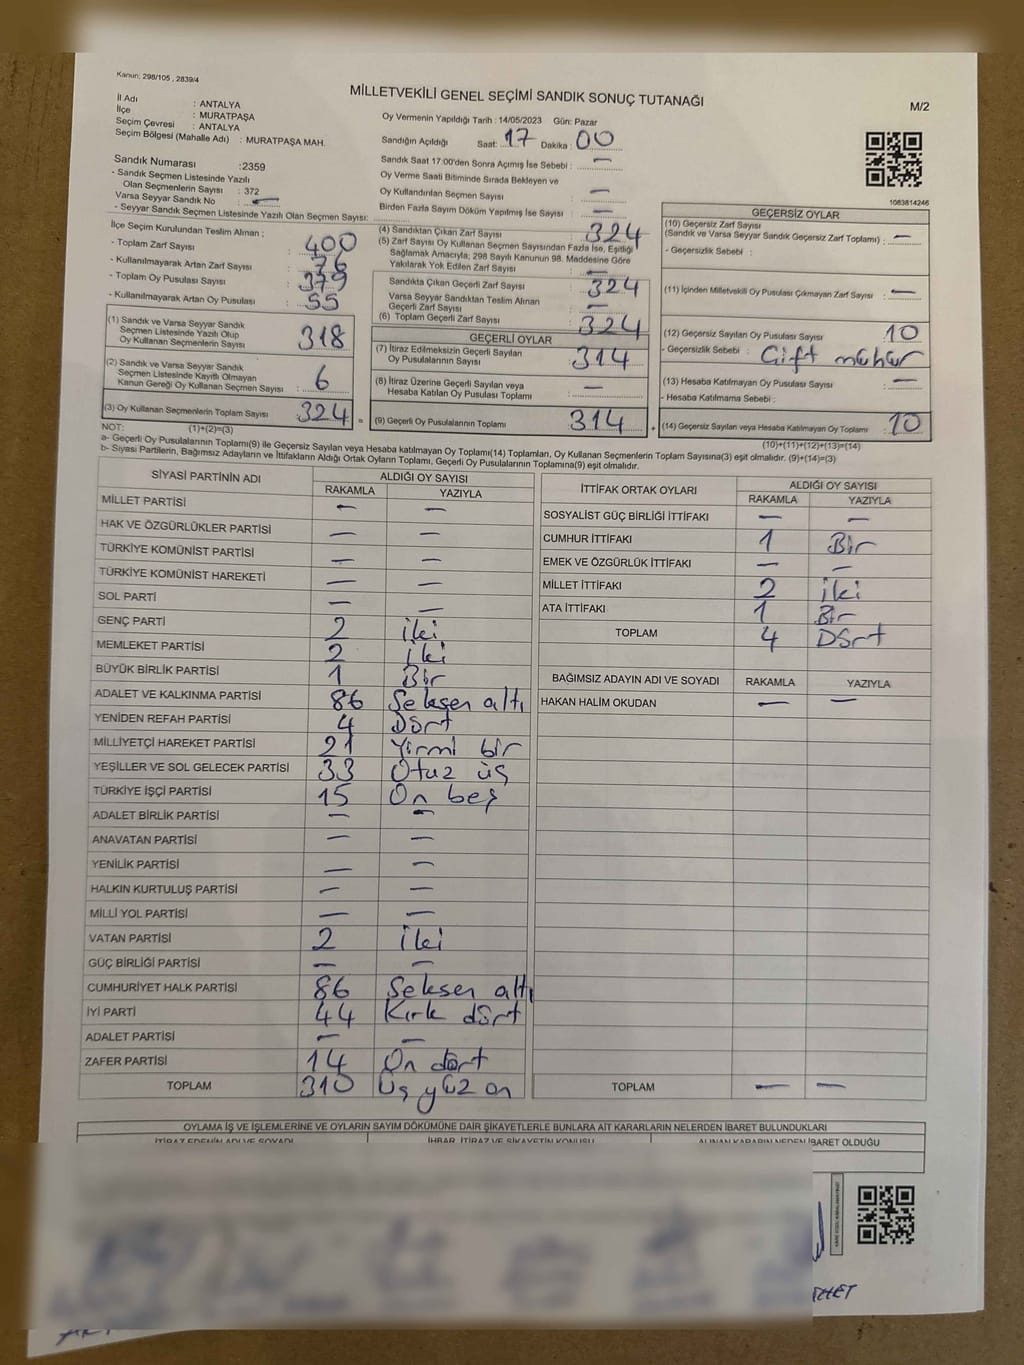 Kanun: 298/105 , 2839/4
MİLLETVEKİLİ GENEL SEÇİMİ SANDIK SONUÇ TUTANAĞI
M/2
İl Adı : ANTALYA
İlçe : MURATPAŞA
Seçim Çevresi : ANTALYA
Seçim Bölgesi (Mahalle Adı) : MURATPAŞA MAH.
Sandık Numarası :2359
- Sandık Seçmen Listesinde Yazılı
Olan Seçmenlerin Sayısı : 372
Varsa Seyyar Sandık No : —
- Seyyar Sandık Seçmen Listesinde Yazılı Olan Seçmen Sayısı:
Oy Vermenin Yapıldığı Tarih : 14/05/2023 Gün: Pazar
Sandığın Açıldığı Saat: 17 Dakika : 00
Sandık Saat 17:00'den Sonra Açımış İse Sebebi : —
Oy Verme Saati Bitiminde Sırada Bekleyen ve
Oy Kullandırılan Seçmen Sayısı —
Birden Fazla Sayım Döküm Yapılmış İse Sayısı : —
1083814246
İlçe Seçim Kurulundan Teslim Alınan ;
- Toplam Zarf Sayısı : 400
- Kullanılmayarak Artan Zarf Sayısı : 76
- Toplam Oy Pusulası Sayısı : 379
- Kullanılmayarak Artan Oy Pusulası : 55
(1) Sandık ve Varsa Seyyar Sandık
Seçmen Listesinde Yazılı Olup
Oy Kullanan Seçmenlerin Sayısı : 318
(2) Sandık ve Varsa Seyyar Sandık
Seçmen Listesinde Kayıtlı Olmayan
Kanun Gereği Oy Kullanan Seçmen Sayısı : 6
(3) Oy Kullanan Seçmenlerin Toplam Sayısı : 324 =
(4) Sandıktan Çıkan Zarf Sayısı : 324
(5) Zarf Sayısı Oy Kullanan Seçmen Sayısından Fazla İse, Eşitliği
Sağlamak Amacıyla; 298 Sayılı Kanunun 98. Maddesine Göre
Yakılarak Yok Edilen Zarf Sayısı : —
Sandıkta Çıkan Geçerli Zarf Sayısı : 324
Varsa Seyyar Sandıktan Teslim Alınan
Geçerli Zarf Sayısı : —
(6) Toplam Geçerli Zarf Sayısı : 324
GEÇERLİ OYLAR
(7) İtiraz Edilmeksizin Geçerli Sayılan
Oy Pusulalarının Sayısı : 314
(8) İtiraz Üzerine Geçerli Sayılan veya
Hesaba Katılan Oy Pusulası Toplamı : —
(9) Geçerli Oy Pusulalarının Toplamı : 314 +
GEÇERSİZ OYLAR
(10) Geçersiz Zarf Sayısı
(Sandık ve Varsa Seyyar Sandık Geçersiz Zarf Toplamı) : —
- Geçersizlik Sebebi :
(11) İçinden Milletvekili Oy Pusulası Çıkmayan Zarf Sayısı : —
(12) Geçersiz Sayılan Oy Pusulası Sayısı : 10
- Geçersizlik Sebebi : Çift mühür
(13) Hesaba Katılmayan Oy Pusulası Sayısı : —
- Hesaba Katılmama Sebebi :
(14) Geçersiz Sayılan veya Hesaba Katılmayan Oy Toplamı : 10
NOT: (1)+(2)=(3) (10)+(11)+(12)+(13)=(14)
a- Geçerli Oy Pusulalarının Toplamı(9) ile Geçersiz Sayılan veya Hesaba katılmayan Oy Toplamı(14) Toplamları, Oy Kullanan Seçmenlerin Toplam Sayısına(3) eşit olmalıdır. (9)+(14)=(3)
b- Siyasi Partilerin, Bağımsız Adayların ve İttifakların Aldığı Ortak Oyların Toplamı, Geçerli Oy Pusulalarının Toplamına(9) eşit olmalıdır.
SİYASİ PARTİNİN ADI ALDIĞI OY SAYISI
RAKAMLA YAZIYLA
MİLLET PARTİSİ — —
HAK VE ÖZGÜRLÜKLER PARTİSİ — —
TÜRKİYE KOMÜNİST PARTİSİ — —
TÜRKİYE KOMÜNİST HAREKETİ — —
SOL PARTİ — —
GENÇ PARTİ 2 iki
MEMLEKET PARTİSİ 2 iki
BÜYÜK BİRLİK PARTİSİ 1 Bir
ADALET VE KALKINMA PARTİSİ 86 Seksen altı
YENİDEN REFAH PARTİSİ 4 Dört
MİLLİYETÇİ HAREKET PARTİSİ 21 Yirmi bir
YEŞİLLER VE SOL GELECEK PARTİSİ 33 Otuz üç
TÜRKİYE İŞÇİ PARTİSİ 15 On beş
ADALET BİRLİK PARTİSİ — —
ANAVATAN PARTİSİ — —
YENİLİK PARTİSİ — —
HALKIN KURTULUŞ PARTİSİ — —
MİLLİ YOL PARTİSİ — —
VATAN PARTİSİ 2 iki
GÜÇ BİRLİĞİ PARTİSİ — —
CUMHURİYET HALK PARTİSİ 86 Seksen altı
İYİ PARTİ 44 Kırk dört
ADALET PARTİSİ — —
ZAFER PARTİSİ 14 On dört
TOPLAM 310 Üç yüz on
İTTİFAK ORTAK OYLARI ALDIĞI OY SAYISI
RAKAMLA YAZIYLA
SOSYALİST GÜÇ BİRLİĞİ İTTİFAKI — —
CUMHUR İTTİFAKI 1 Bir
EMEK VE ÖZGÜRLÜK İTTİFAKI — —
MİLLET İTTİFAKI 2 iki
ATA İTTİFAKI 1 Bir
TOPLAM 4 Dört
BAĞIMSIZ ADAYIN ADI VE SOYADI RAKAMLA YAZIYLA
HAKAN HALİM OKUDAN — —
TOPLAM — —
OYLAMA İŞ VE İŞLEMLERİNE VE OYLARIN SAYIM DÖKÜMÜNE DAİR ŞİKAYETLERLE BUNLARA AİT KARARLARIN NELERDEN İBARET BULUNDUKLARI
İTİRAZ EDENİN ADI VE SOYADI İHBAR, İTİRAZ VE ŞİKAYETİN KONUSU ALINAN KARARIN NEDEN İBARET OLDUĞU